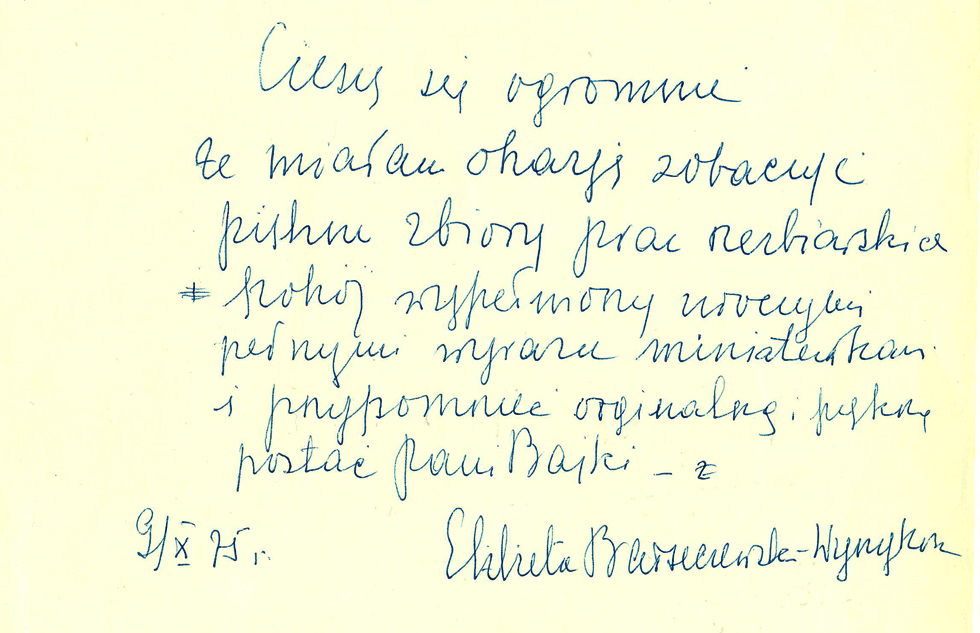 Cieszę się ogromnie
że miałam okazję zobaczyć
piękne zbiory prac rzeźbiarskich
pokój wypełniony uroczymi
pełnymi wyrazu miniaturkami
i przypomnieć orginalną i piękną
postać Pani Bajki –
9/X 75 r. Elżbieta Barszczewska-Wyrzykow